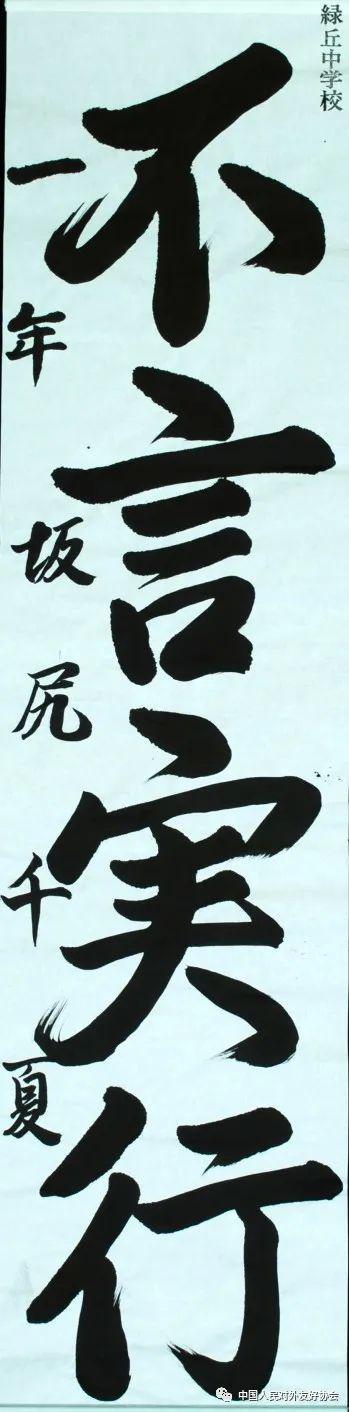 緑丘中学校
不言実行
一年坂尻千夏
中国人民对外友好协会